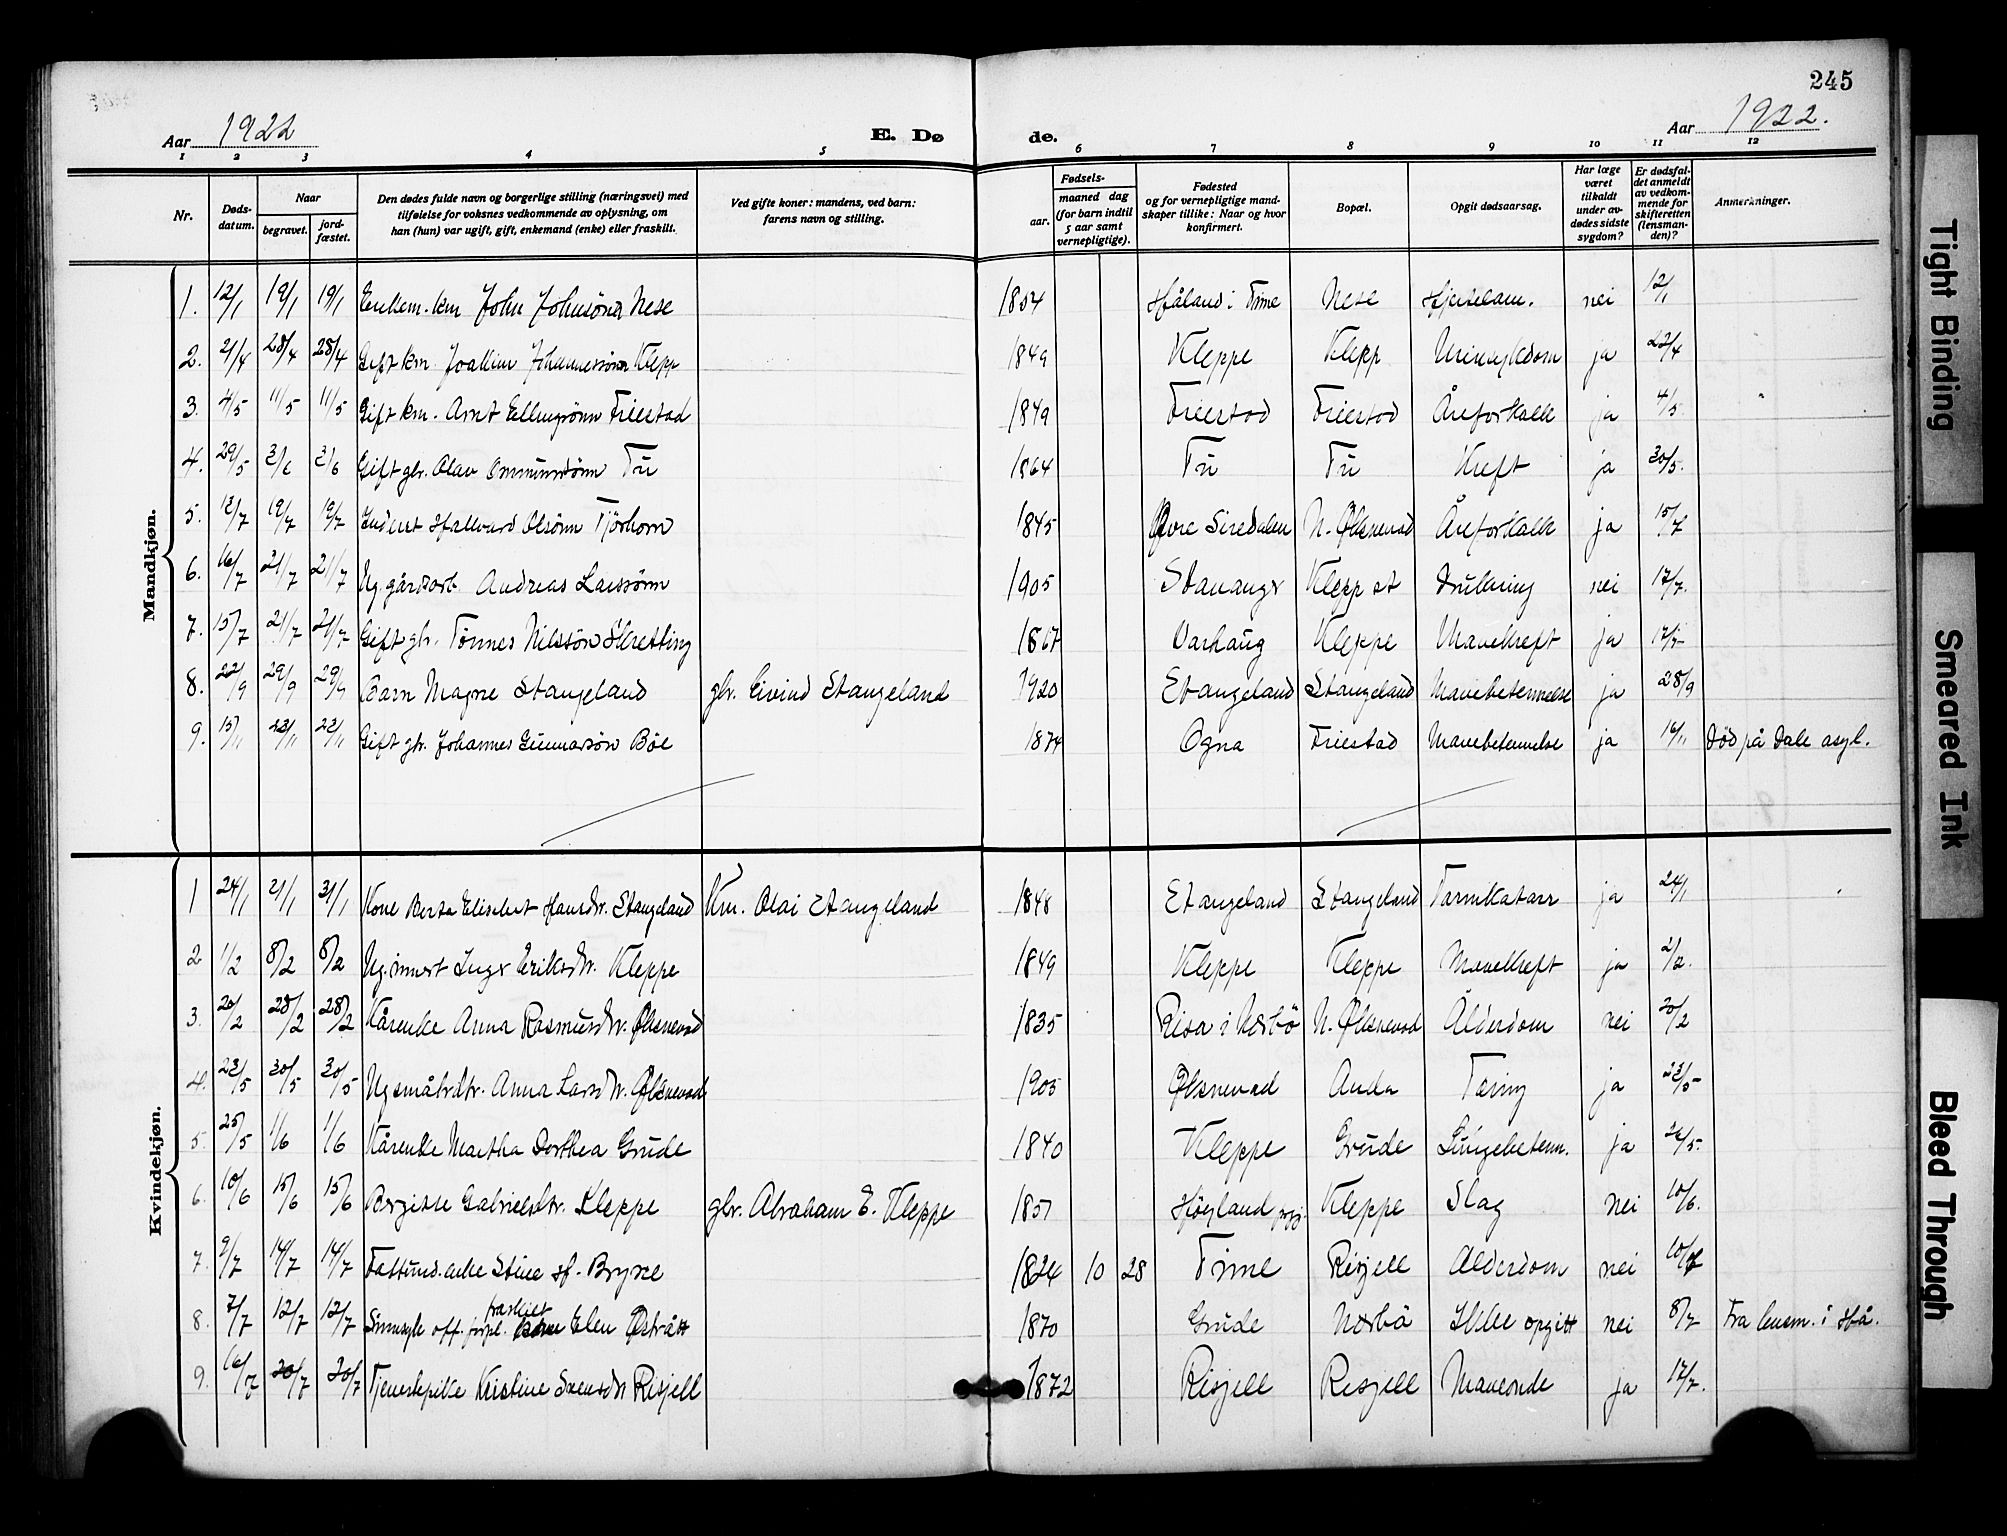 245
Aar 1922 E. Dø de. Aar 1922.
1 2 3 4 5 6 7 8 9 10 11 12
Nr.
Døds-datum.
Naar
begravet.
jord-fæstet.
Den dødes fulde navn og borgerlige stilling (næringsvei) med
tilføielse for voksnes vedkommende av oplysning, om
han (hun) var ugift, gift, enkemand (enke) eller fraskilt.
Ved gifte koner: mandens, ved barn:
farens navn og stilling.
Fødsels-
aar.
maaned dag
(for barn indtil
5 aar samt
vernepligtige).
Fødested
og for vernepligtige mand-
skaper tillike: Naar og hvor
konfirmert.
Bopæl.
Opgit dødsaarsag.
Har læge
været
tilkaldt
under av-
dødes sidste
sygdom?
Er dødsfal-
det anmeldt
av vedkom-
mende for
skifteretten
(lensman-
den)?
Anmerkninger.
Mandkjøn.
1. 12/1 19/1 19/1 Enkem. km John Johnsøn Nese 1854 Håland i Time Nese Hjertelam. nei 12/1
2. 21/4 28/4 28/4 Gift km. Joakim Johannessønn Klepp 1849 Kleppe Klepp ja 22/4
3. 4/5 11/5 11/5 Gift km. Arnt Ellingsønn Friestad 1849 Friestad Friestad Åreforkalk ja 4/5.
4. 29/5 3/6 3/6 Gift gbr. Olav Ommundsønn Tu 1864 Tu Tu Kreft ja 30/5.
5. 12/7 19/7 19/7 Inderst Hallvard Olsønn Tjørhom 1845 Øvre Siredalen N. Øksnevad Åreforkalk ja 15/7
6. 16/7 21/7 21/7 Ug. gårdsarb. Andreas Larssønn 1905 Stavanger Klepp st Drukning nei 17/7.
7. 15/7 21/7 21/7 Gift gbr. Tønnes Nilssøn Skretting 1867 Varhaug Kleppe Mavekreft ja 17/7
8. 22/9 29/9 29/9 Barn Magne Stangeland gbr. Eivind Stangeland 1920 Stangeland Stangeland Mavebetennelse ja 28/9
9. 15/11 22/11 22/11 Gift gbr. Johannes Gunnarsøn Bøe 1874 Ogna Friestad Mavebetennelse ja 16/11 Død på Dale asyl.
Kvindekjøn.
1 24/1 31/1 31/1 Kone Berta Elisabet Hansdtr. Stangeland Km. Olai Stangeland 1848 Stangeland Stangeland Tarmkatarr ja 24/1
2 1/2 8/2 8/2 Ug. innerst Inger Eriksdtr. Kleppe 1849 Kleppe Kleppe Mavekreft ja 2/2.
3. 20/2 28/2 28/2 Kårenke Anna Rasmusdtr. Øksnevad 1835 Risa i Nærbø N. Øksnevad Ålderdom nei 20/2
4. 23/5 30/5 30/5 Ug småbrdtr. Anna Larsdtr. Øksnevad 1905 Øksnevad Anda Tæring ja 23/5
5. 25/5 1/6 1/6 Kårenke Martha Dorthea Grude 1840 Kleppe Grude Lungebetenn. ja 26/5.
6. 10/6 15/6 15/6 Bergitte Gabrielsdtr. Kleppe gbr. Abraham E. Kleppe 1857 Høyland prgj. Kleppe Slag nei 10/6.
7. 9/7 14/7 14/7 Fattund. enke Stine Bryne 1824 10 28 Time Risjell Alderdom nei 10/7
8. 7/7 12/7 12/7 Sinnsyk off. forpl. fraskilt Elen Østrått 1870 Grude Nærbø Ikke opgitt nei 8/7 Fra lensm. i Hå.
9. 16/7 20/7 20/7 Tjenestepike Kristine Svensdtr Risjell 1872 Risjell Risjell Maveonde ja 17/7.
Tight Binding
Smeared Ink
Bleed Through